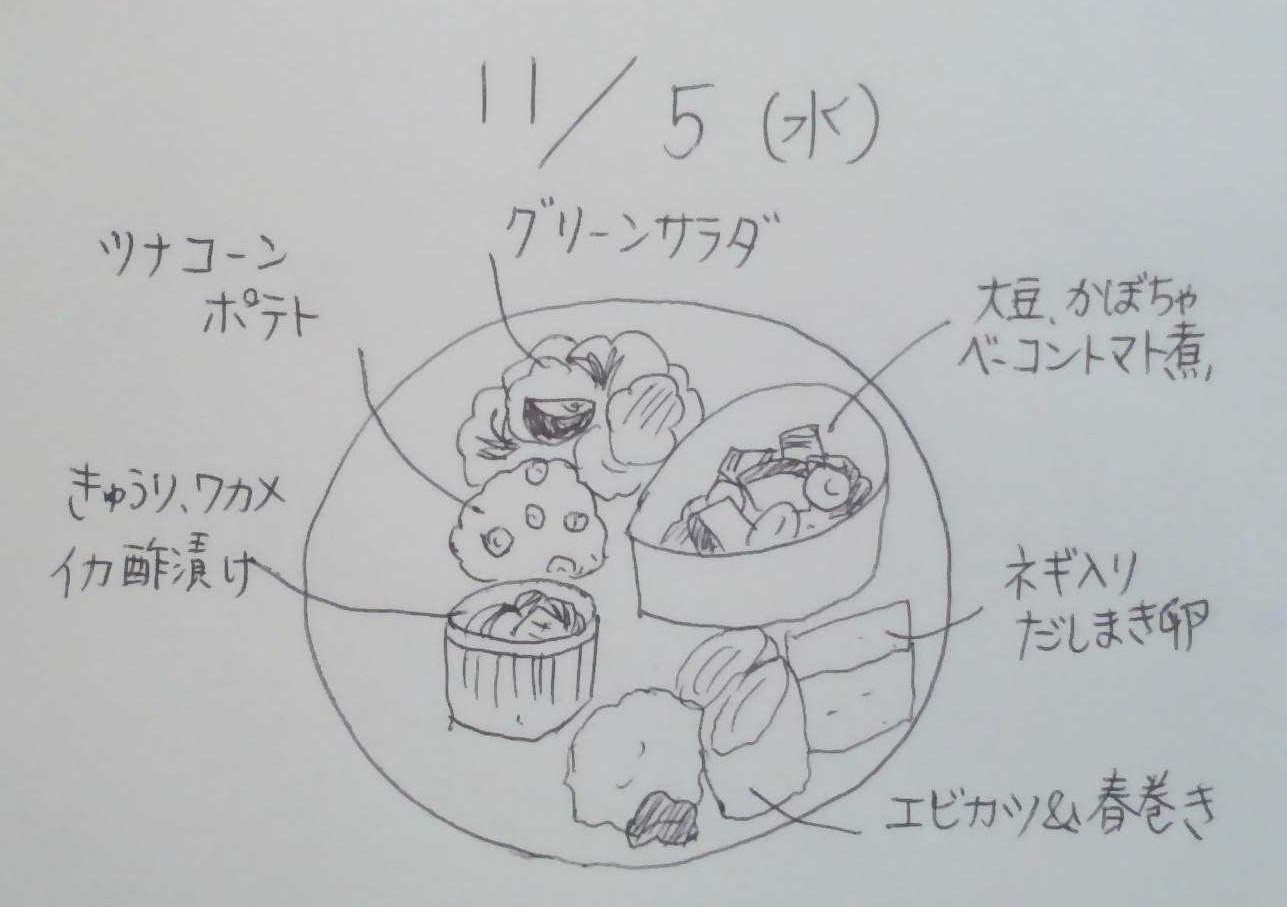 11/5(水)
グリーンサラダ
ツナコーン
ポテト
大豆、かぼちゃ
ベーコントマト煮
きゅうり、ワカメ
イカ酢漬け
ネギ入り
だしまき卵
エビカツ&春巻き